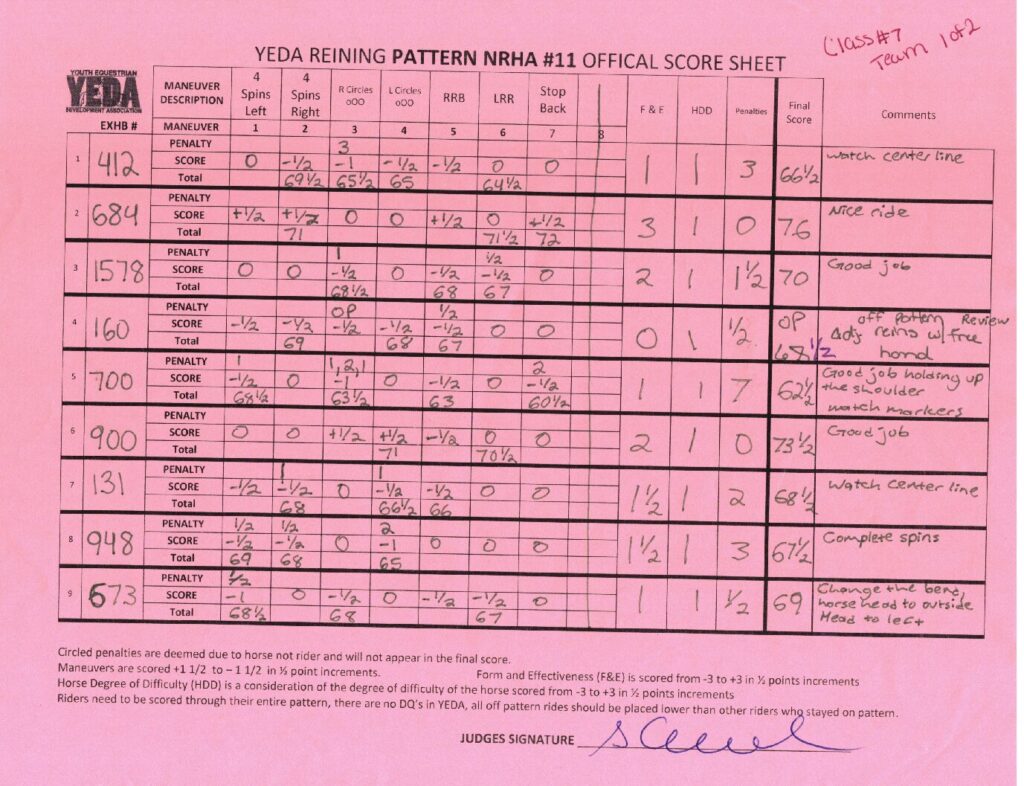 Class#7
Team 1 of 2
YEDA REINING PATTERN NRHA #11 OFFICAL SCORE SHEET
YOUTH EQUESTRIAN
YEDA
DEVELOPMENT ASSOCIATION
EXHB #
MANEUVER DESCRIPTION 4 Spins Left 4 Spins Right R Circles oOO L Circles oOO RRB LRR Stop Back F & E HDD Penalties Final Score Comments
MANEUVER 1 2 3 4 5 6 7 8
PENALTY 3
1 412 SCORE 0 -1/2 -1 -1/2 -1/2 0 0 1 1 3 66 1/2 Watch center line
Total 69 1/2 65 1/2 65 64 1/2
PENALTY
2 684 SCORE +1/2 +1/2 0 0 +1/2 0 +1/2 3 1 0 76 Nice ride
Total 71 71 1/2 72
PENALTY 1 1/2
3 1578 SCORE 0 0 -1/2 0 -1/2 -1/2 0 2 1 1 1/2 70 Good job
Total 68 1/2 68 67
PENALTY OP 1/2
4 160 SCORE -1/2 -1/2 -1/2 -1/2 -1/2 0 0 0 1 1/2 OP 68 1/2 off pattern Review Adj reins w/ free hand
Total 69 68 67
PENALTY 1 1,2,1 2
5 700 SCORE -1/2 0 -1 0 -1/2 0 -1/2 1 1 7 62 1/2 Good job holding up the shoulder watch markers
Total 68 1/2 63 1/2 63 60 1/2
PENALTY
6 900 SCORE 0 0 +1/2 +1/2 -1/2 0 0 2 1 0 73 1/2 Good job
Total 71 70 1/2
PENALTY 1 1
7 131 SCORE -1/2 -1/2 0 -1/2 -1/2 0 0 1 1/2 1 2 68 1/2 Watch center line
Total 68 66 1/2 66
PENALTY 1/2 1/2 2
8 948 SCORE -1/2 -1/2 0 -1 0 0 0 1 1/2 1 3 67 1/2 Complete spins
Total 69 68 65
PENALTY 1/2
9 673 SCORE -1 0 -1/2 0 -1/2 -1/2 0 1 1 1/2 69 Change the bend, horse head to outside Head to left
Total 68 1/2 68 67
Circled penalties are deemed due to horse not rider and will not appear in the final score.
Maneuvers are scored +1 1/2 to – 1 1/2 in ½ point increments. Form and Effectiveness (F&E) is scored from -3 to +3 in ½ points increments
Horse Degree of Difficulty (HDD) is a consideration of the degree of difficulty of the horse scored from -3 to +3 in ½ points increments
Riders need to be scored through their entire pattern, there are no DQ's in YEDA, all off pattern rides should be placed lower than other riders who stayed on pattern.
JUDGES SIGNATURE